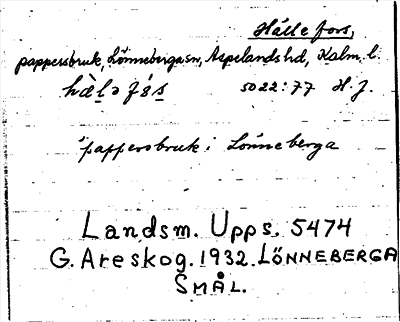 Hällefors,
pappersbruk, Lönneberga sn, Aspelands hd, Kalm. l.
5022:77 H. J.
pappersbruk i Lönneberga
Landsm. Upps. 5474
G. Areskog. 1932. LÖNNEBERGA
SMÅL.